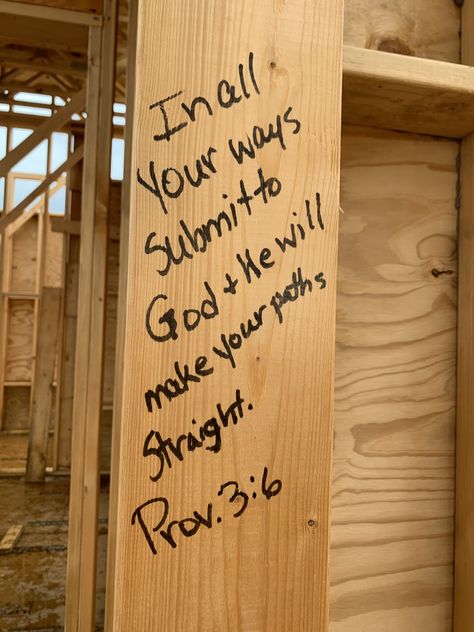 In all
Your ways
Submit to
God + He will
make your paths
Straight.
Prov. 3:6